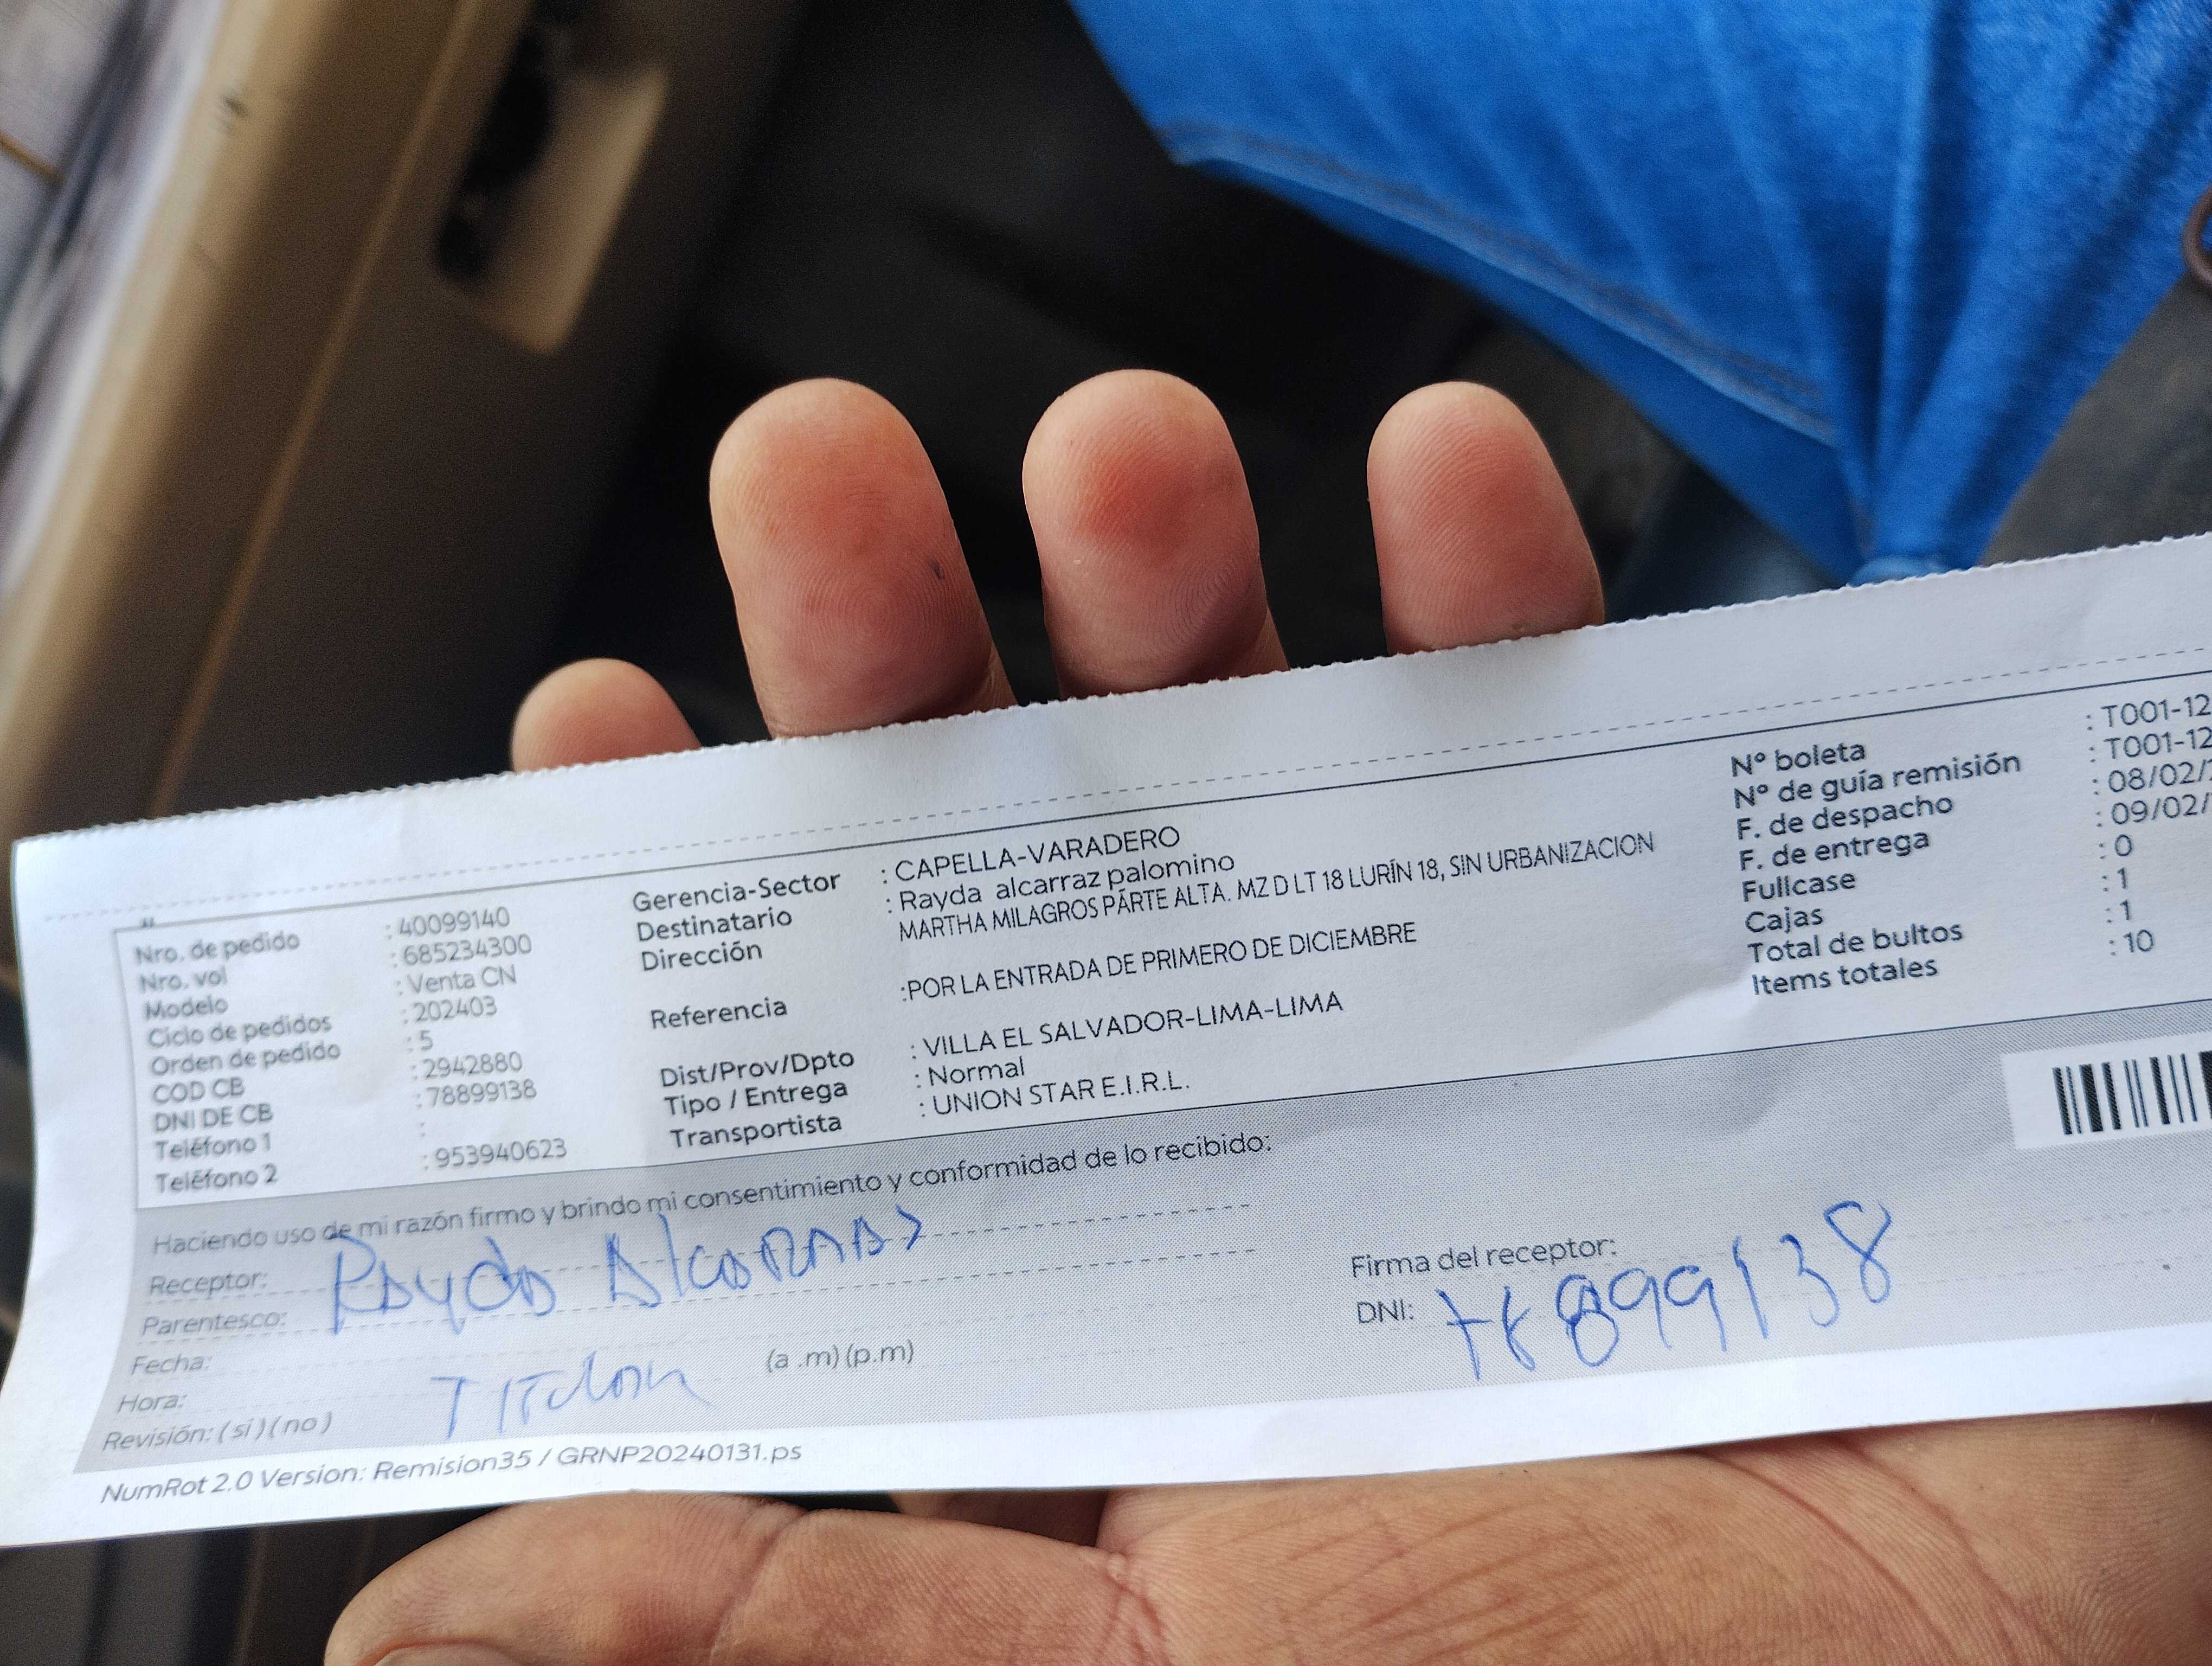 Nro. de pedido : 40099140
Nro. vol : 685234300
Modelo : Venta CN
Ciclo de pedidos : 202403
Orden de pedido : 5
COD CB : 2942880
DNI DE CB : 78899138
Teléfono 1 :
Teléfono 2 : 953940623
Gerencia-Sector : CAPELLA-VARADERO
Destinatario : Rayda alcarraz palomino
Dirección : MARTHA MILAGROS PÁRTE ALTA. MZ D LT 18 LURÍN 18, SIN URBANIZACION
Referencia :POR LA ENTRADA DE PRIMERO DE DICIEMBRE
Dist/Prov/Dpto : VILLA EL SALVADOR-LIMA-LIMA
Tipo / Entrega : Normal
Transportista : UNION STAR E.I.R.L.
Nº boleta : T001-12
Nº de guía remisión : T001-12
F. de despacho : 08/02/
F. de entrega : 09/02/
Fullcase : 0
Cajas : 1
Total de bultos : 1
Items totales : 10
Haciendo uso de mi razón firmo y brindo mi consentimiento y conformidad de lo recibido:
Receptor: Rayda Alcarraz
Parentesco:
Fecha:
Hora: (a .m) (p.m)
Revisión: ( sí ) ( no )
Firma del receptor:
DNI: 78899138
NumRot 2.0 Version: Remision35 / GRNP20240131.ps